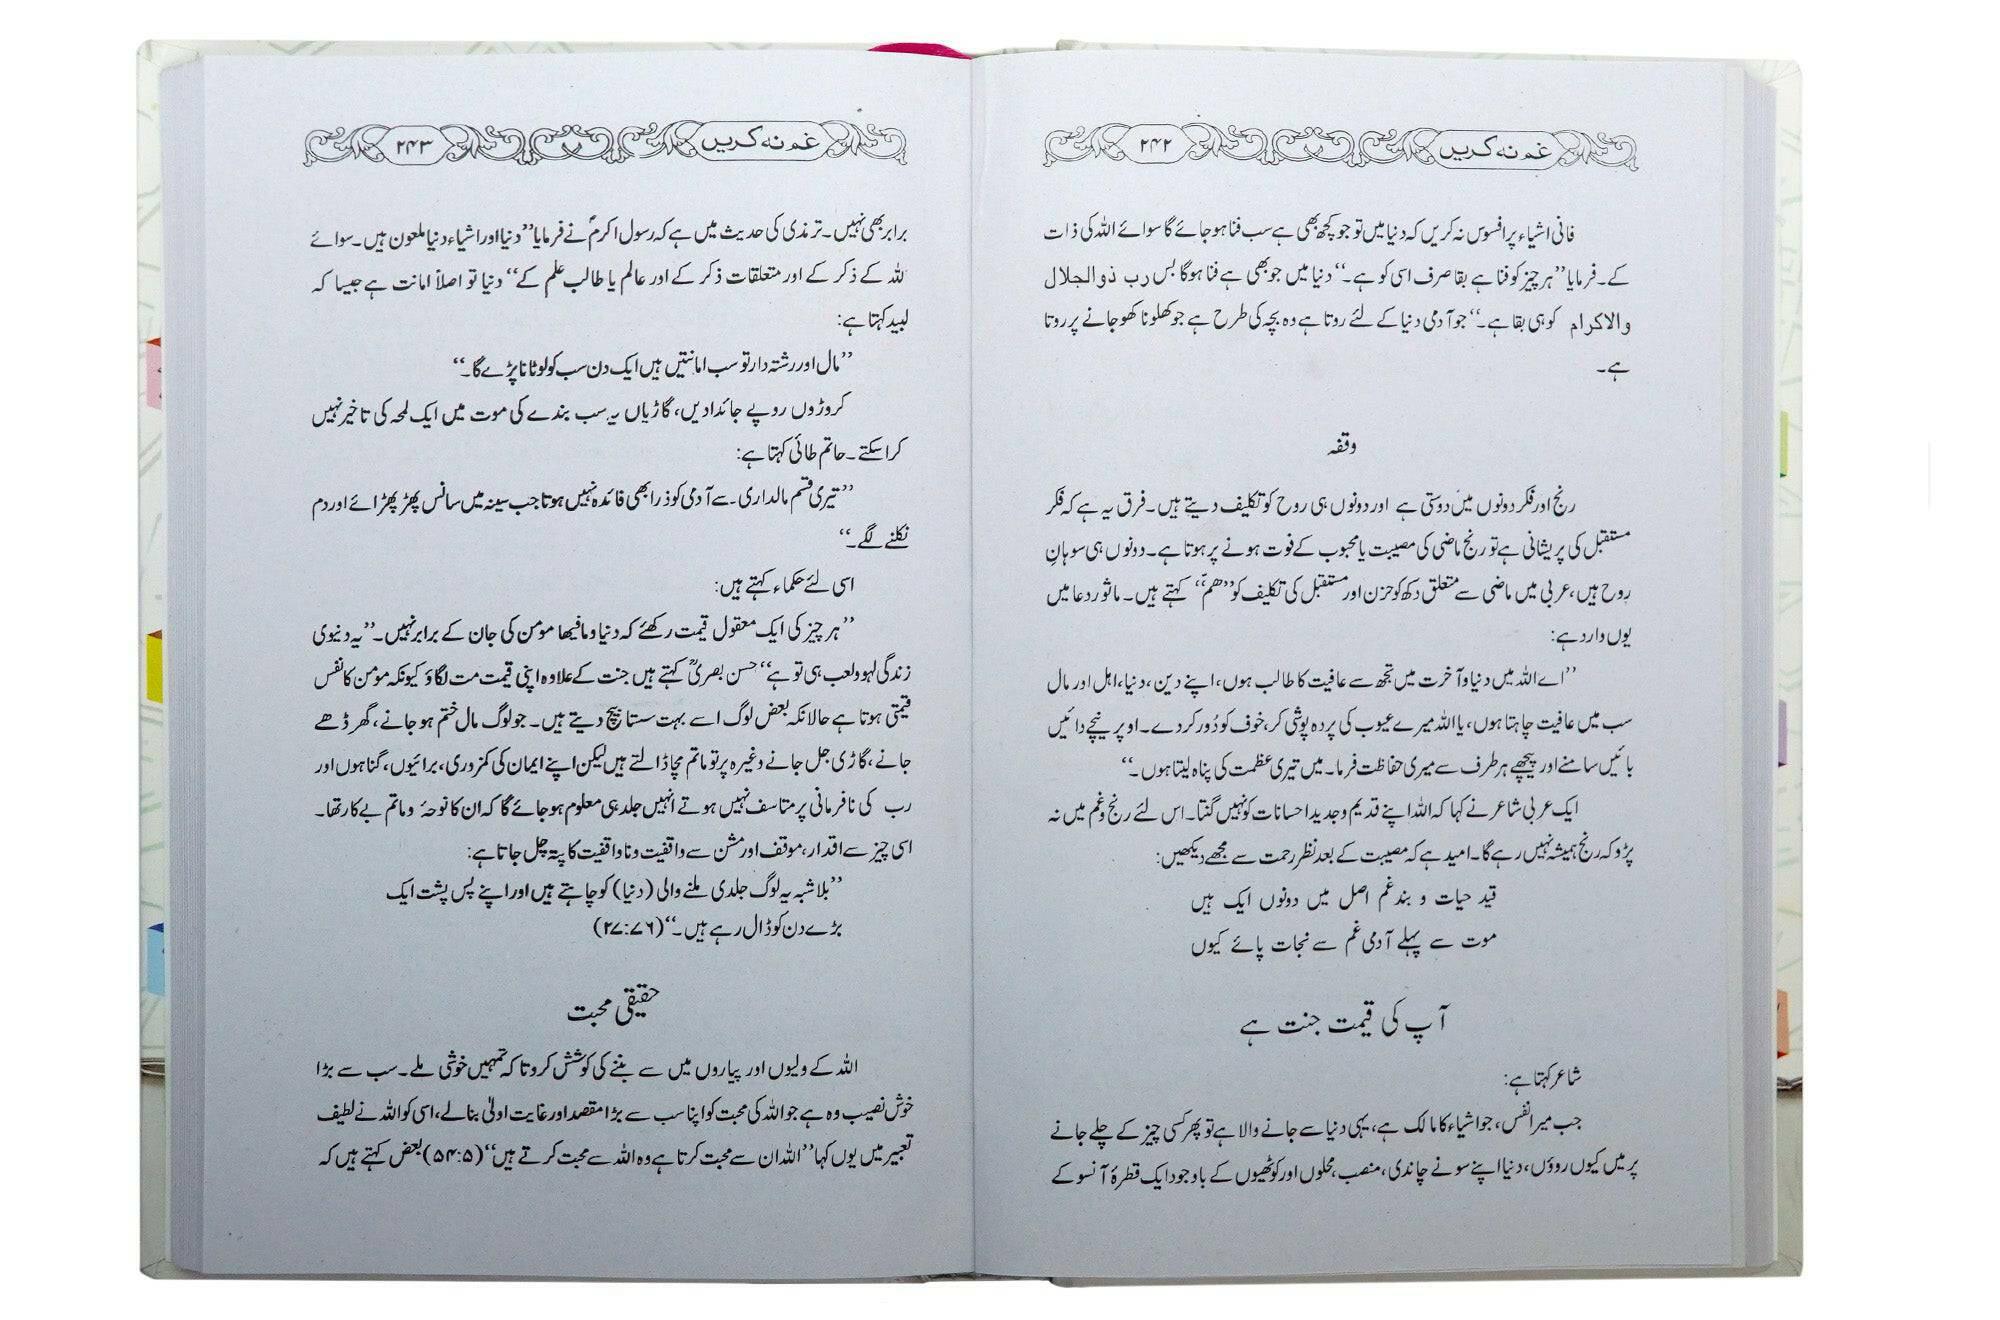 غم نہ کریں ۲۴۲
فانی اشیاء پر افسوس نہ کریں کہ دنیا میں تو جو کچھ بھی ہے سب فنا ہو جائے گا سوائے اللہ کی ذات
کے۔ فرمایا ’’ہر چیز کو فنا ہے بقا صرف اسی کو ہے۔‘‘ دنیا میں جو بھی ہے فنا ہوگا بس رب ذوالجلال
والاکرام کو ہی بقا ہے۔‘‘ جو آدمی دنیا کے لئے روتا ہے وہ بچہ کی طرح ہے جو کھلونا کھو جانے پر روتا
ہے۔
وقفہ
رنج اور فکر دونوں میں دوستی ہے اور دونوں ہی روح کو تکلیف دیتے ہیں۔ فرق یہ ہے کہ فکر
مستقبل کی پریشانی ہے تو رنج ماضی کی مصیبت یا محبوب کے فوت ہونے پر ہوتا ہے۔ دونوں ہی سوہانِ
روح ہیں، عربی میں ماضی سے متعلق دکھ کو حزن اور مستقبل کی تکلیف کو ’’ھمّ‘‘ کہتے ہیں۔ ماثور دعا میں
یوں وارد ہے:
’’اے اللہ میں دنیا و آخرت میں تجھ سے عافیت کا طالب ہوں، اپنے دین، دنیا، اہل اور مال
سب میں عافیت چاہتا ہوں، یا اللہ میرے عیوب کی پردہ پوشی کر، خوف کو دُور کر دے۔ اوپر نیچے دائیں
بائیں سامنے اور پیچھے ہر طرف سے میری حفاظت فرما۔ میں تیری عظمت کی پناہ لیتا ہوں۔‘‘
ایک عربی شاعر نے کہا کہ اللہ اپنے قدیم و جدید احسانات کو نہیں گنتا۔ اس لئے رنج و غم میں نہ
پڑو کہ رنج ہمیشہ نہیں رہے گا۔ امید ہے کہ مصیبت کے بعد نظر رحمت سے مجھے دیکھیں:
قید حیات و بند غم اصل میں دونوں ایک ہیں
موت سے پہلے آدمی غم سے نجات پائے کیوں
آپ کی قیمت جنت ہے
شاعر کہتا ہے:
جب میرا نفس، جو اشیاء کا مالک ہے، یہی دنیا سے جانے والا ہے تو پھر کسی چیز کے چلے جانے
پر میں کیوں روؤں، دنیا اپنے سونے چاندی، منصب، محلوں اور کوٹھیوں کے باوجود ایک قطرۂ آنسو کے
غم نہ کریں ۲۴۳
برابر بھی نہیں۔ ترمذی کی حدیث میں ہے کہ رسول اکرمؐ نے فرمایا ’’دنیا اور اشیاء دنیا ملعون ہیں۔ سوائے
للہ کے ذکر کے اور متعلقات ذکر کے اور عالم یا طالب علم کے‘‘ دنیا تو اصلاً امانت ہے جیسا کہ
لبید کہتا ہے:
’’مال اور رشتہ دار تو سب امانتیں ہیں ایک دن سب کو لوٹانا پڑے گا۔‘‘
کروڑوں روپے جائدادیں، گاڑیاں یہ سب بندے کی موت میں ایک لمحہ کی تاخیر نہیں
کرا سکتے۔ حاتم طائی کہتا ہے:
’’تیری قسم مالداری سے آدمی کو ذرا بھی فائدہ نہیں ہوتا جب سینہ میں سانس پھڑپھڑائے اور دم
نکلنے لگے۔‘‘
اسی لئے حکماء کہتے ہیں:
’’ہر چیز کی ایک معقول قیمت رکھئے کہ دنیا و مافیھا مومن کی جان کے برابر نہیں۔‘‘ یہ دنیوی
زندگی لہو و لعب ہی تو ہے‘‘ حسن بصریؒ کہتے ہیں جنت کے علاوہ اپنی قیمت مت لگاؤ کیونکہ مومن کا نفس
قیمتی ہوتا ہے حالانکہ بعض لوگ اسے بہت سستا بیچ دیتے ہیں۔ جو لوگ مال ختم ہو جانے، گھر ڈھے
جانے، گاڑی جل جانے وغیرہ پر تو ماتم مچا ڈالتے ہیں لیکن اپنے ایمان کی کمزوری، برائیوں، گناہوں اور
رب کی نافرمانی پر متاسف نہیں ہوتے انہیں جلد ہی معلوم ہو جائے گا کہ ان کا نوحہ و ماتم بے کار تھا۔
اسی چیز سے اقدار، موقف اور مشن سے واقفیت و ناواقفیت کا پتہ چل جاتا ہے:
’’بلاشبہ یہ لوگ جلدی ملنے والی (دنیا) کو چاہتے ہیں اور اپنے پس پشت ایک
بڑے دن کو ڈال رہے ہیں۔‘‘ (۲۷:۷۶)
حقیقی محبت
اللہ کے ولیوں اور پیاروں میں سے بننے کی کوشش کرو تا کہ تمہیں خوشی ملے۔ سب سے بڑا
خوش نصیب وہ ہے جو اللہ کی محبت کو اپنا سب سے بڑا مقصد اور غایت اولیٰ بنا لے، اسی کو اللہ نے لطیف
تعبیر میں یوں کہا ’’اللہ ان سے محبت کرتا ہے وہ اللہ سے محبت کرتے ہیں‘‘ (۵۴:۵) بعض کہتے ہیں کہ